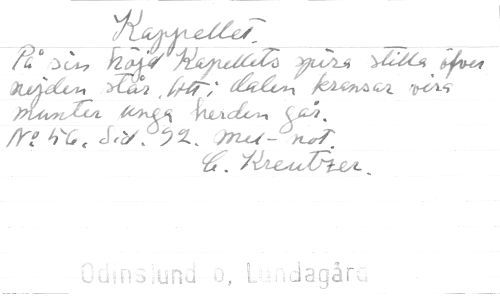 Kappellet.
På sin höjd Kapellets spira stilla öfver
nejden står, Att i dalen kransar vira
munter unga herden går.
No 56. Sid. 92. Mel-not.
C. Kreutzer.
Odinslund o, Lundagård